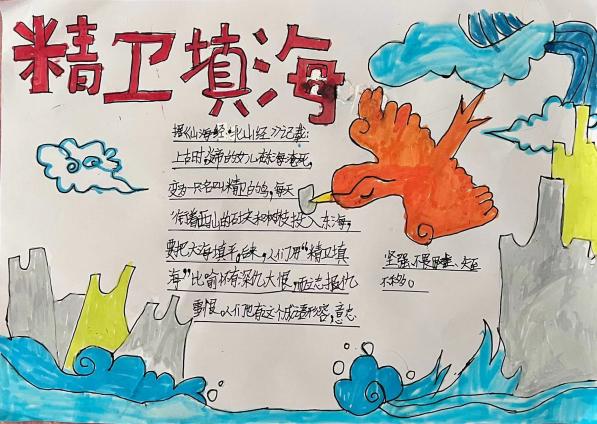 精卫填海
据《山海经·北山经》记载:
上古时炎帝的女儿在东海淹死,
变为一只名叫精卫的鸟,每天
衔着西山的石子和树枝投入东海,
要把大海填平,后来,人们用“精卫填
海”比喻怀有深仇大恨,而立志报仇
雪恨。人们也有这个成语形容,意志
坚强,不畏
不移。